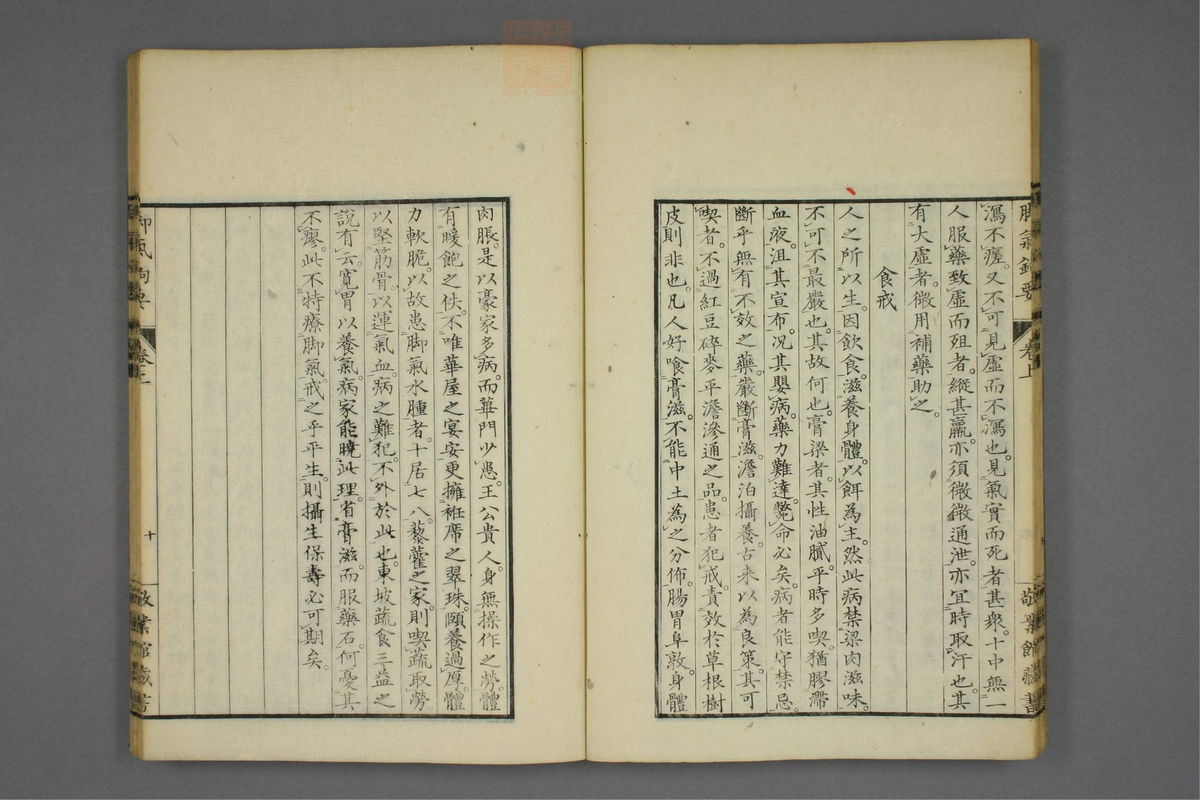 脚氣鉤要 卷上 敬業館藏書
瀉不瘥。又不可見虛而不瀉也。見氣實而死者甚衆。十中無一
人服藥致虛而殂者。縱甚羸。亦須微微通泄。亦宜時取汗也。其
有大虛者。微用補藥助之。
食戒
人之所以生。因飲食。滋養身體。以餌為主。然此病禁梁肉滋味。
不可不最嚴也。其故何也。膏梁者。其性油膩。平時多喫。猶膠滯
血液。沮其宣布。况其嬰病。藥力難達。斃命必矣。病者能守禁忌。
斷乎無有不效之藥。嚴斷膏滋。澹泊攝養。古来以為良策。其可
喫者。不過紅豆碎麥平澹滲通之品。患者犯戒。責效於草根樹
皮則非也。凡人好喰膏滋。不能中土為之分佈。腸胃阜敦。身體
肉脹。是以豪家多病。而蓽門少患。王公貴人。身無操作之勞。體
有暖飽之佚。不唯華屋之宴安。更擁袵席之翠珠。頤養過厚。體
力軟脆。以故患脚氣水腫者。十居七八。藜藿之家。則喫蔬取勞。
以堅筋骨。以運氣血。病之難犯。不外於此也。東坡蔬食三益之
說有云。寬胃以養氣。病家能曉此理。省膏滋。而服藥石。何憂其
不瘳。此不特療脚氣。戒之乎平生。則攝生保壽必可期矣。
卷上 十 敬業館藏書